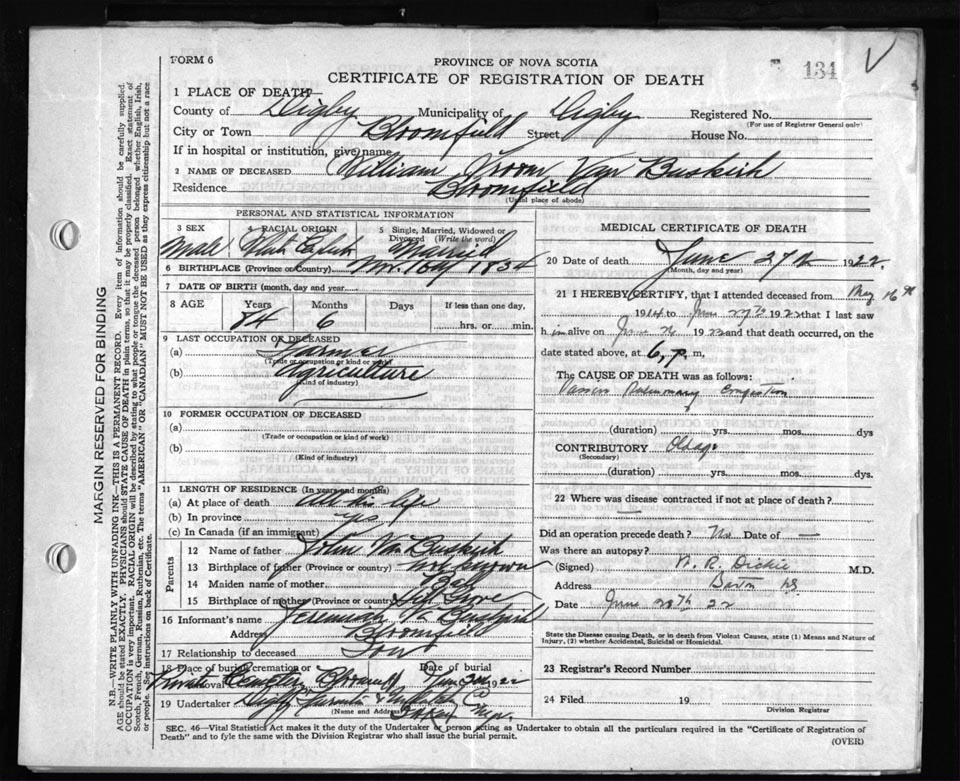 FORM 6
PROVINCE OF NOVA SCOTIA
CERTIFICATE OF REGISTRATION OF DEATH
134
1 PLACE OF DEATH—
County of Digby Municipality of Digby Registered No.
(For use of Registrar General only)
City or Town Bloomfield Street House No.
If in hospital or institution, give name
2 NAME OF DECEASED William Vroom Van Buskirk
Residence Bloomfield
(Usual place of abode)
PERSONAL AND STATISTICAL INFORMATION
3 SEX Male
4 RACIAL ORIGIN White English
5 Single, Married, Widowed or Divorced (Write the word) Married
6 BIRTHPLACE (Province or Country) 1834
7 DATE OF BIRTH (month, day and year)
8 AGE Years Months Days If less than one day,
84 6 hrs. or min.
9 LAST OCCUPATION OF DECEASED
(a) Farmer
(Trade or occupation or kind of work)
(b) Agriculture
(Kind of industry)
10 FORMER OCCUPATION OF DECEASED
(a)
(Trade or occupation or kind of work)
(b)
(Kind of industry)
11 LENGTH OF RESIDENCE (In years and months)
(a) At place of death All his life
(b) In province yes
(c) In Canada (if an immigrant)
Parents
12 Name of father John Van Buskirk
13 Birthplace of father (Province or country) not known
14 Maiden name of mother
15 Birthplace of mother (Province or country) Hill Grove
16 Informant's name Jeremiah V. Buskirk
Address Bloomfield
17 Relationship to deceased Son
18 Place of burial, cremation or removal Private Cemetery Bloomfield Date of burial 1922
19 Undertaker Digby
(Name and Address)
MEDICAL CERTIFICATE OF DEATH
20 Date of death June 27th 1922
(Month, day and year)
21 I HEREBY CERTIFY, that I attended deceased from May 16th
19 to June 27th 1922 that I last saw
him alive on June 1922 and that death occurred, on the
date stated above, at 6, p. m,
The CAUSE OF DEATH was as follows:
Passive Pulmonary Congestion
(duration) yrs. mos. dys
CONTRIBUTORY Old age
(Secondary)
(duration) yrs. mos. dys.
22 Where was disease contracted if not at place of death?
—
Did an operation precede death? No Date of —
Was there an autopsy?
(Signed) R. Dickie M.D.
Address Barton NS
Date June 28th 22
State the Disease causing Death, or in death from Violent Causes, state (1) Means and Nature of
Injury, (2) whether Accidental, Suicidal or Homicidal.
23 Registrar's Record Number
24 Filed 19
Division Registrar
SEC. 46—Vital Statistics Act makes it the duty of the Undertaker or person acting as Undertaker to obtain all the particulars required in the "Certificate of Registration of
Death" and to fyle the same with the Division Registrar who shall issue the burial permit.
(OVER)
MARGIN RESERVED FOR BINDING
N.B.—WRITE PLAINLY WITH UNFADING INK—THIS IS A PERMANENT RECORD. Every item of information should be carefully supplied.
AGE should be stated EXACTLY. PHYSICIANS should STATE CAUSE OF DEATH in plain terms, so that it may be properly classified. Exact statement of
OCCUPATION is very important. RACIAL ORIGIN will be described by stating to what people or tongue the deceased person belonged whether English, Irish,
Scotch, French, German, Russian, Ruthenian, etc. The terms "AMERICAN" or "CANADIAN" MUST NOT BE USED as they express citizenship but not a race
or people. See instructions on back of Certificate.